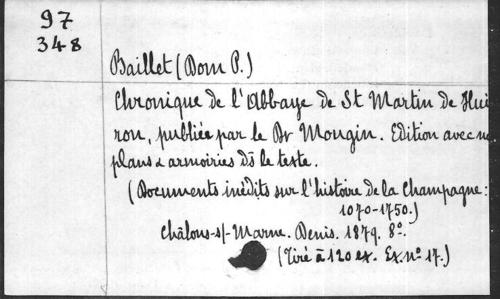 97
348
Baillet (Dom P.)
Chronique de l'Abbaye de St Martin de Hui
ron, publiée par le Dr Mougin. Edition avec
plans & armoiries ds le texte.
(Documents inédits sur l'histoire de la Champagne:
1070-1750.)
Châlons-s/-Marne. Denis. 1879. 8º.
(Tiré à 120 ex. Ex. nº 17.)